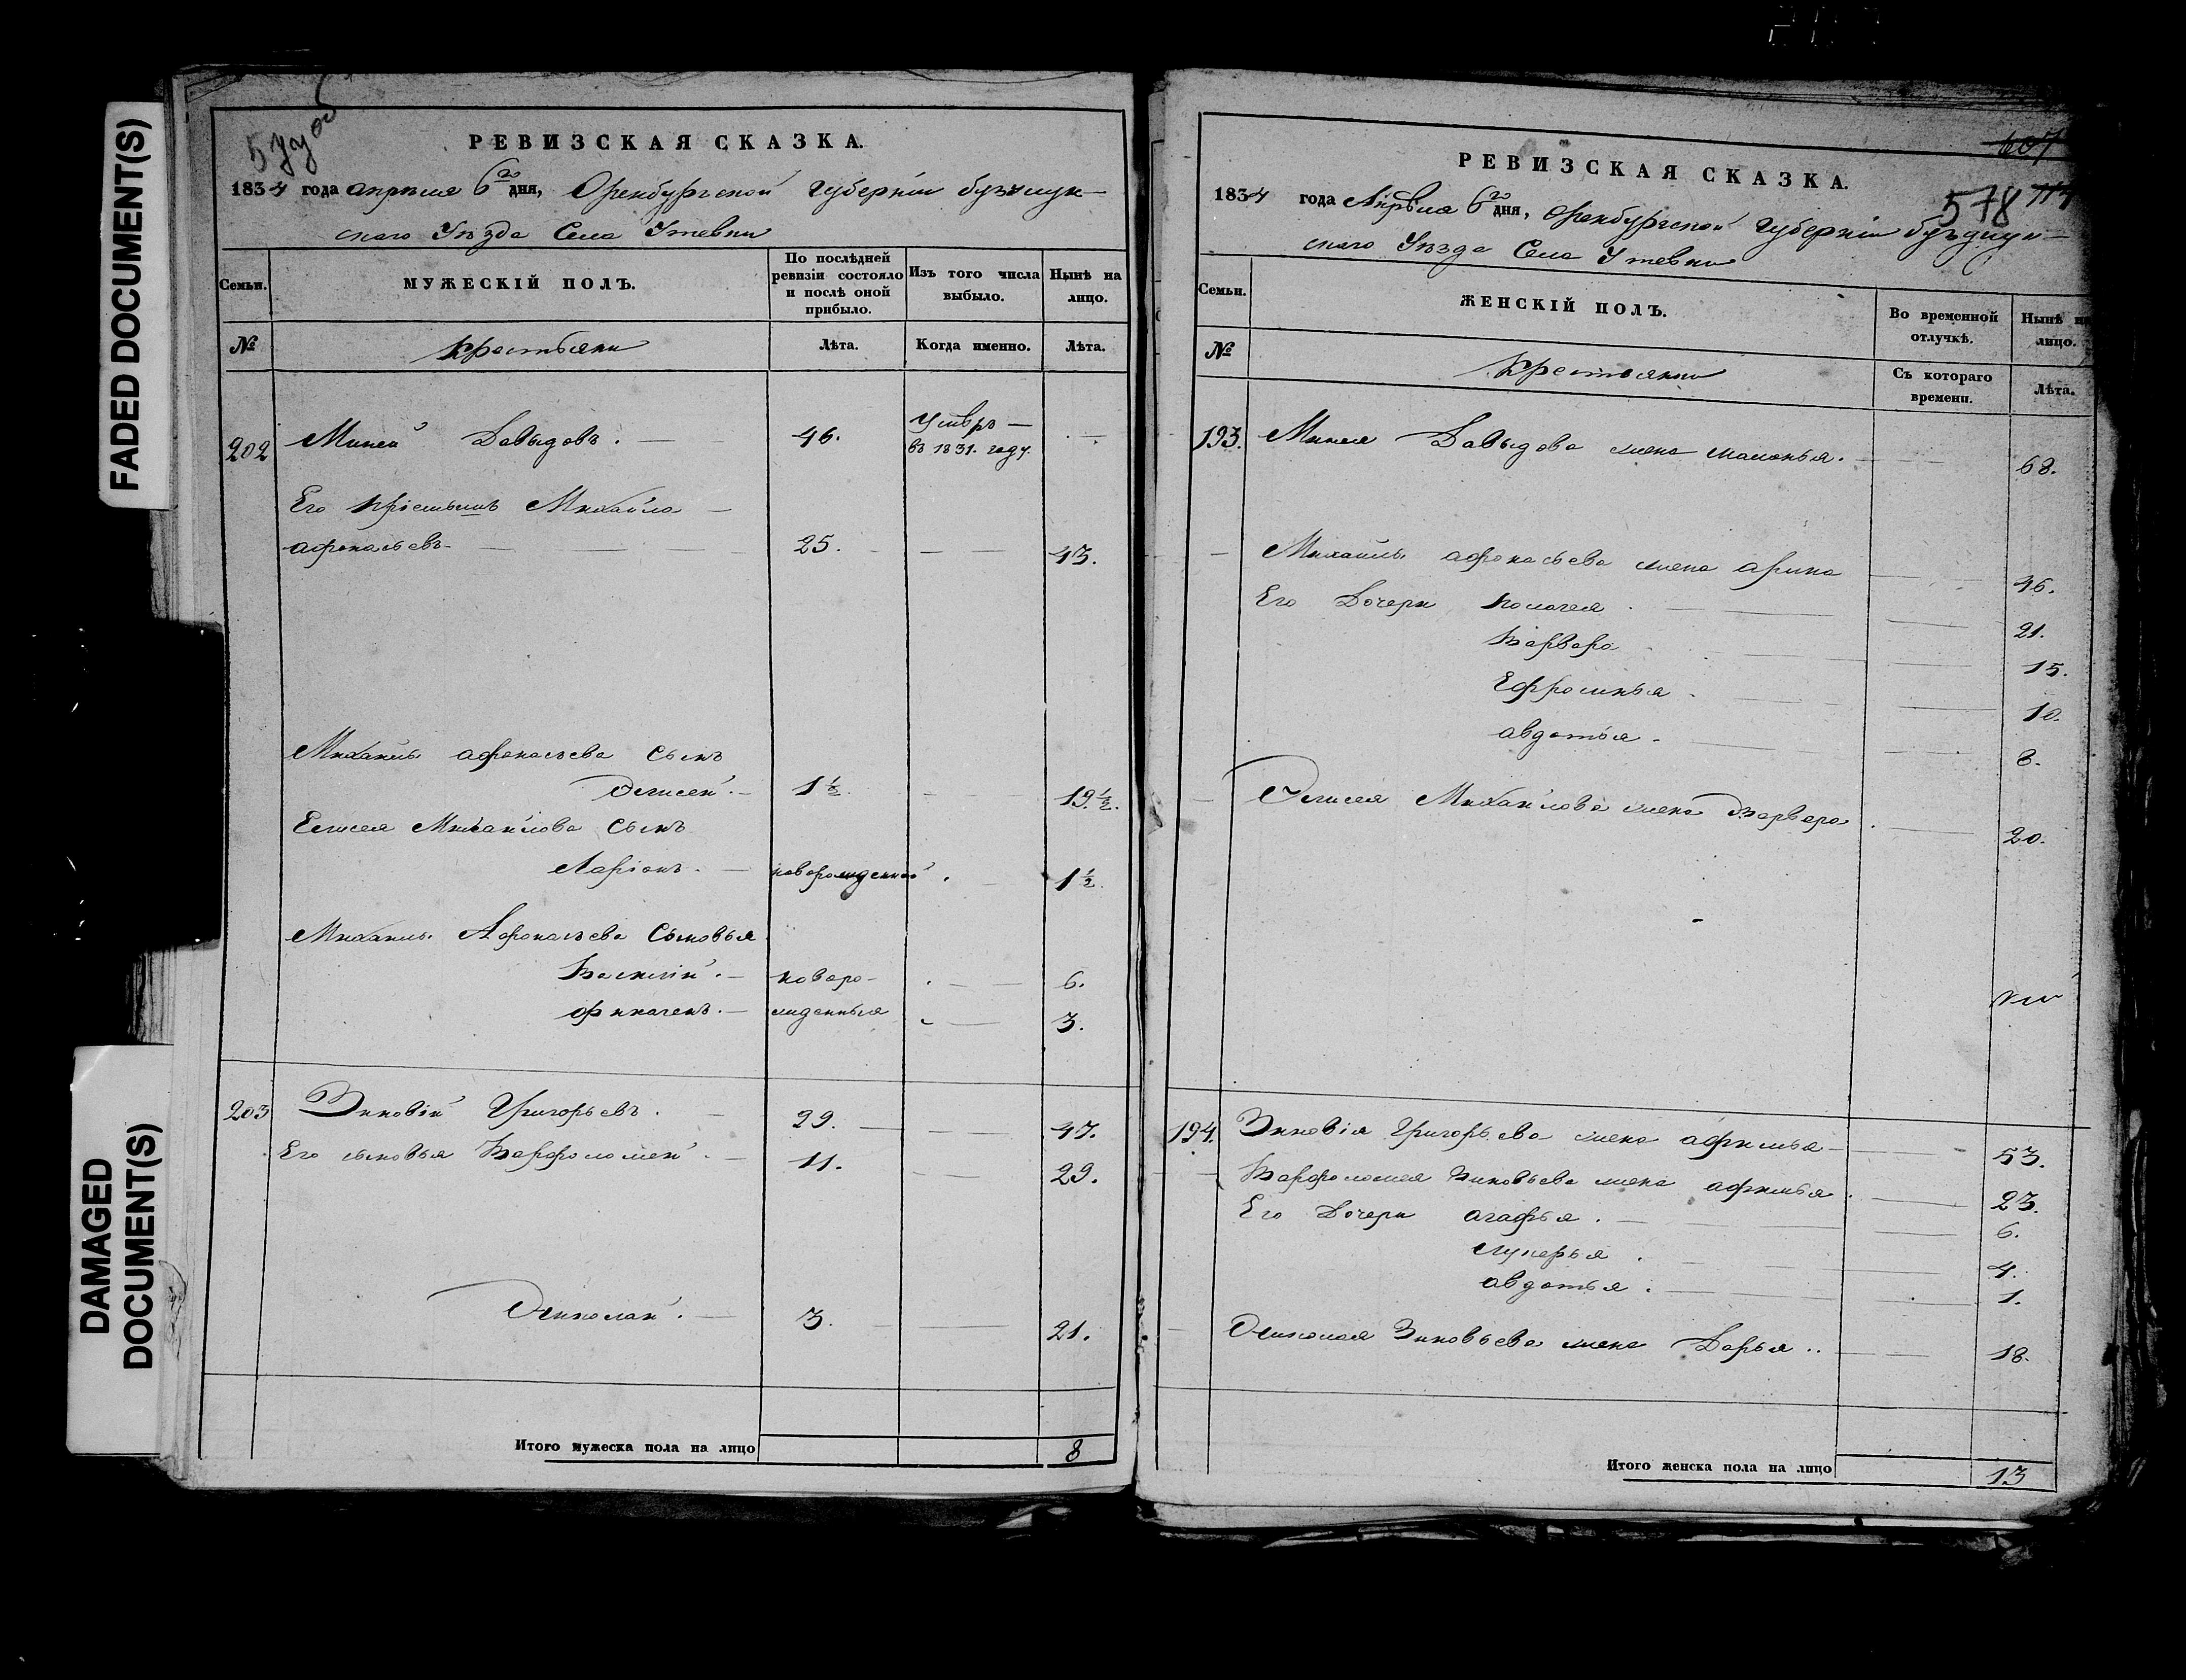 FADED DOCUMENT(S)
DAMAGED
DOCUMENT(S)
РЕВИЗСКАЯ СКАЗКА.
1834 года апреля 6го дня, Оренбургской губерніи бузулук-
скаго Уѣзда Села Утевки
Семьи.
МУЖЕСКІЙ ПОЛЪ.
По послѣдней
ревизіи состояло
и послѣ оной
прибыло.
Изъ того числа
выбыло.
Нынѣ на
лицо.
№
крестьяни
Лѣта.
Когда именно.
Лѣта.
202 Миней Давыдовъ. 46. Умѣръ
въ 1831. году.
Его пріемышъ Михайла
афонасьевъ 25. 43.
Михаилы афонасьева Сынъ
Элисей. 1½. 19½.
Елисея Михайлова Сынъ
Ларіонъ. новорожденной 1½.
Михаилы Афонасьева Сыновья
Василій. новоро- 6.
финагенъ. жденныя 3.
203 Зиновій Григорьевъ. 29. 47.
Его сыновья Варфоломей. 11. 29.
Николай. 3. 21.
Итого мужеска пола на лицо 8
607
578
РЕВИЗСКАЯ СКАЗКА.
1834 года Апрѣля 6го дня, Оренбургской Губерніи бузулук-
скаго Уѣзда Села Утевки
Семьи.
ЖЕНСКІЙ ПОЛЪ.
Во временной
отлучкѣ.
Нынѣ на
лицо.
№
крестьяни
Съ котораго
времени.
Лѣта.
193. Минея Давыдова жена маланья. 68.
Михаилы афонасьева жена арина 46.
Его Дочери пологея. 21.
Варвара 15.
Ефросинья. 10.
авдотья. 8.
Элисея Михайлова жена Варвара. 20.
194. Зиновія Григорьева жена афимья 53.
Варфоломея Зиновьева жена афимья. 23.
Его Дочери агафья. 6.
лукерья. 4.
авдотья. 1.
Николая Зиновьева жена Дарья.. 18.
Итого женска пола на лицо 13